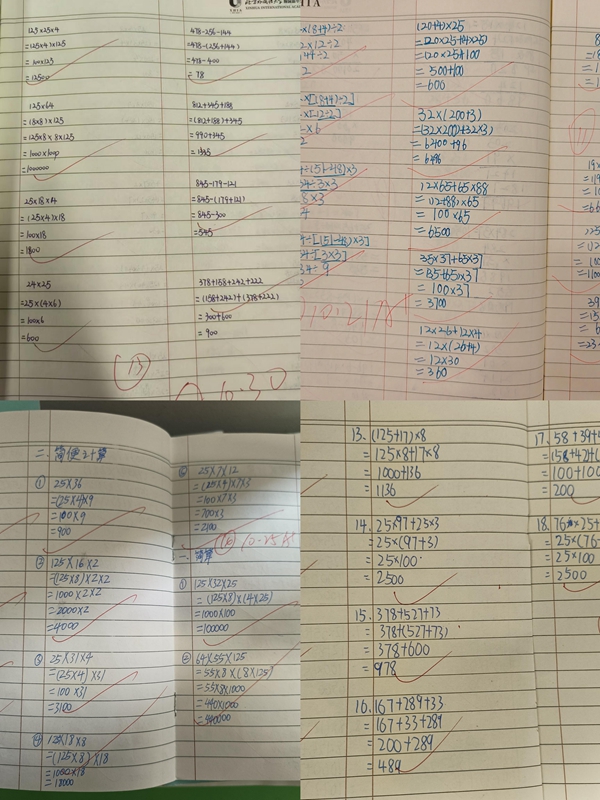 125×25×4
=(25×4)×125
=100×125
=12500
125×64
=(8×8)×125
=125×8×8×125
=1000×1000
=1000000
25×18×4
=(25×4)×18
=100×18
=1800
24×25
=25×(4×6)
=100×6
=600
478-256-144
=478-(256+144)
=478-400
=78
812+345+188
=(812+188)+345
=990+345
=1345
845-179-121
=845-(179+121)
=845-300
=545
378+158+242+222
=(158+242)+(378+222)
=300+600
=900
13
10.30
×(8+4)÷2
2×12÷2
44÷2
×[(8+4)÷2]
×[12÷2]
×6
2
÷(51-48)×3
÷3×3
8×3
4
÷[(51-48)×3]
÷[3×3]
÷9
(20+4)×25
=(20×25+4×25)
=(20×25+100
=500+100
=600
32×(200+3)
=(32×200)+(32×3)
=6400+96
=6496
12×65+65×88
=(12+88)×65
=100×65
=6500
35×37+65×37
=(35+65)×37
=100×37
=3700
12×26+12×4
=12×(26+4)
=12×30
=360
二、简便计算
① 25×36
=(25×4)×9
=100×9
=900
② 125×16×2
=(125×8)×2×2
=1000×2×2
=2000×2
=4000
③ 25×31×4
=(25×4)×31
=100×31
=3100
④ 125×18×8
=(125×8)×18
=1000×18
=18000
25×7×12
=(25×4)×7×3
=100×7×3
=700×3
=2100
一、简算
① 125×32×25
=(125×8)×(4×25)
=1000×100
=100000
② 64×55×125
=55×8×(8×125)
=55×8×1000
=440×1000
=440000
13. (125+17)×8
=125×8+17×8
=1000+136
=1136
14. 25×97+25×3
=25×(97+3)
=25×100
=2500
15. 378+527+73
=378+(527+73)
=378+600
=978
16. 167+289+33
=167+33+289
=200+289
=489
17. 58+39+4
=(58+42)+(
=100+100
=200
18. 76×25+
=25×(76-
=25×100
=2500